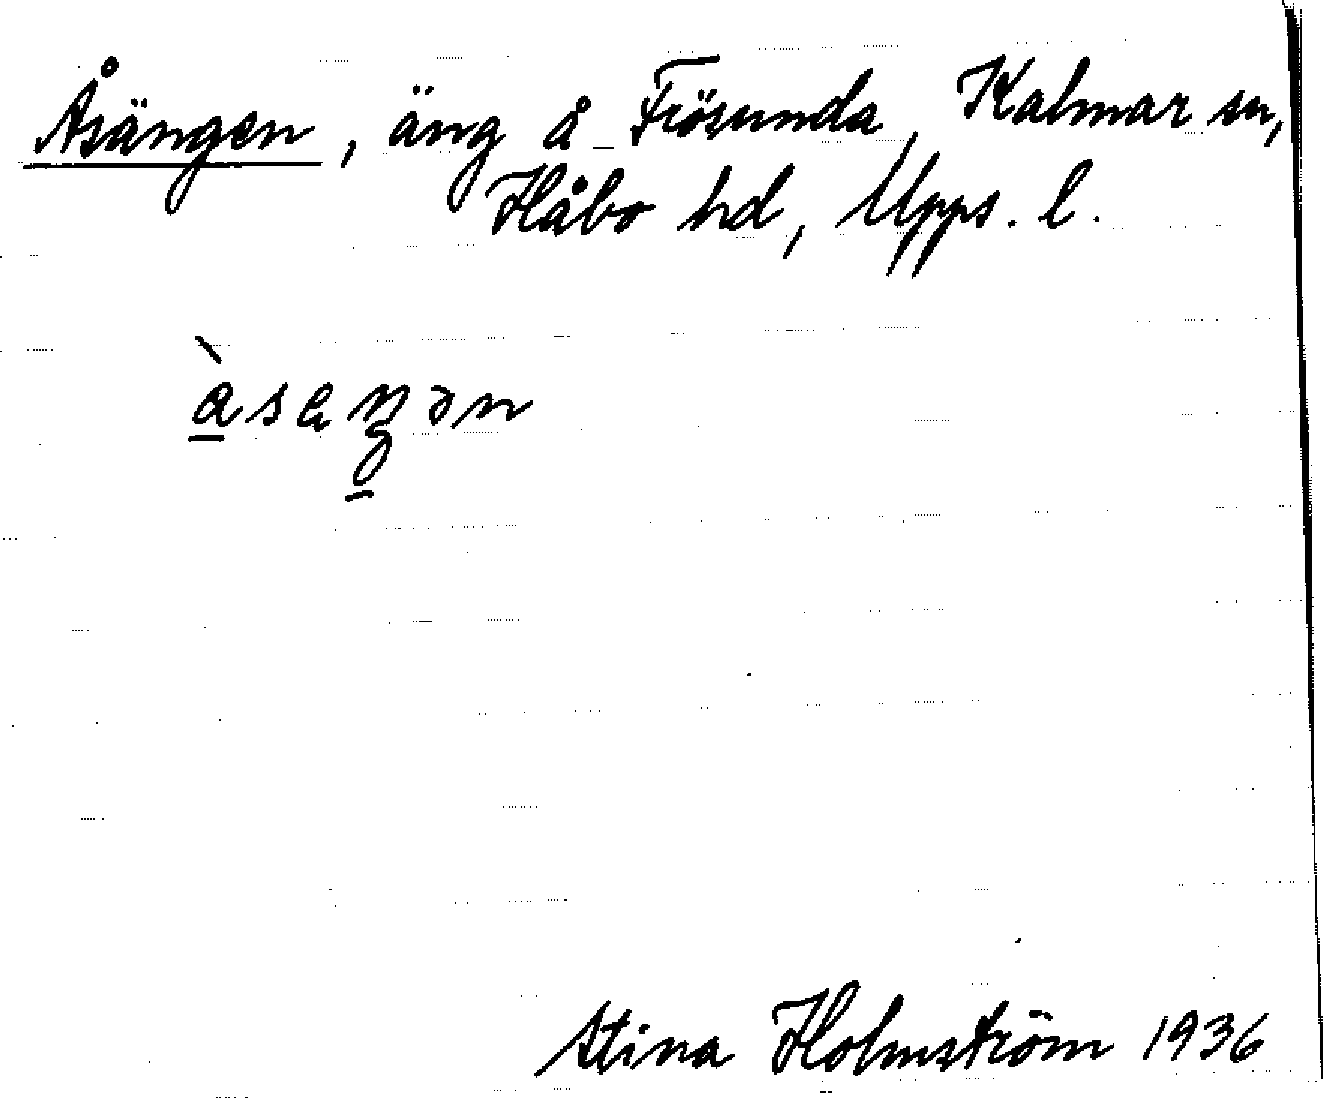 Åsängen, äng å Frösunda, Kalmar sn,
Håbo hd, Upps. l.
àsaŋən
Stina Holmström 1936